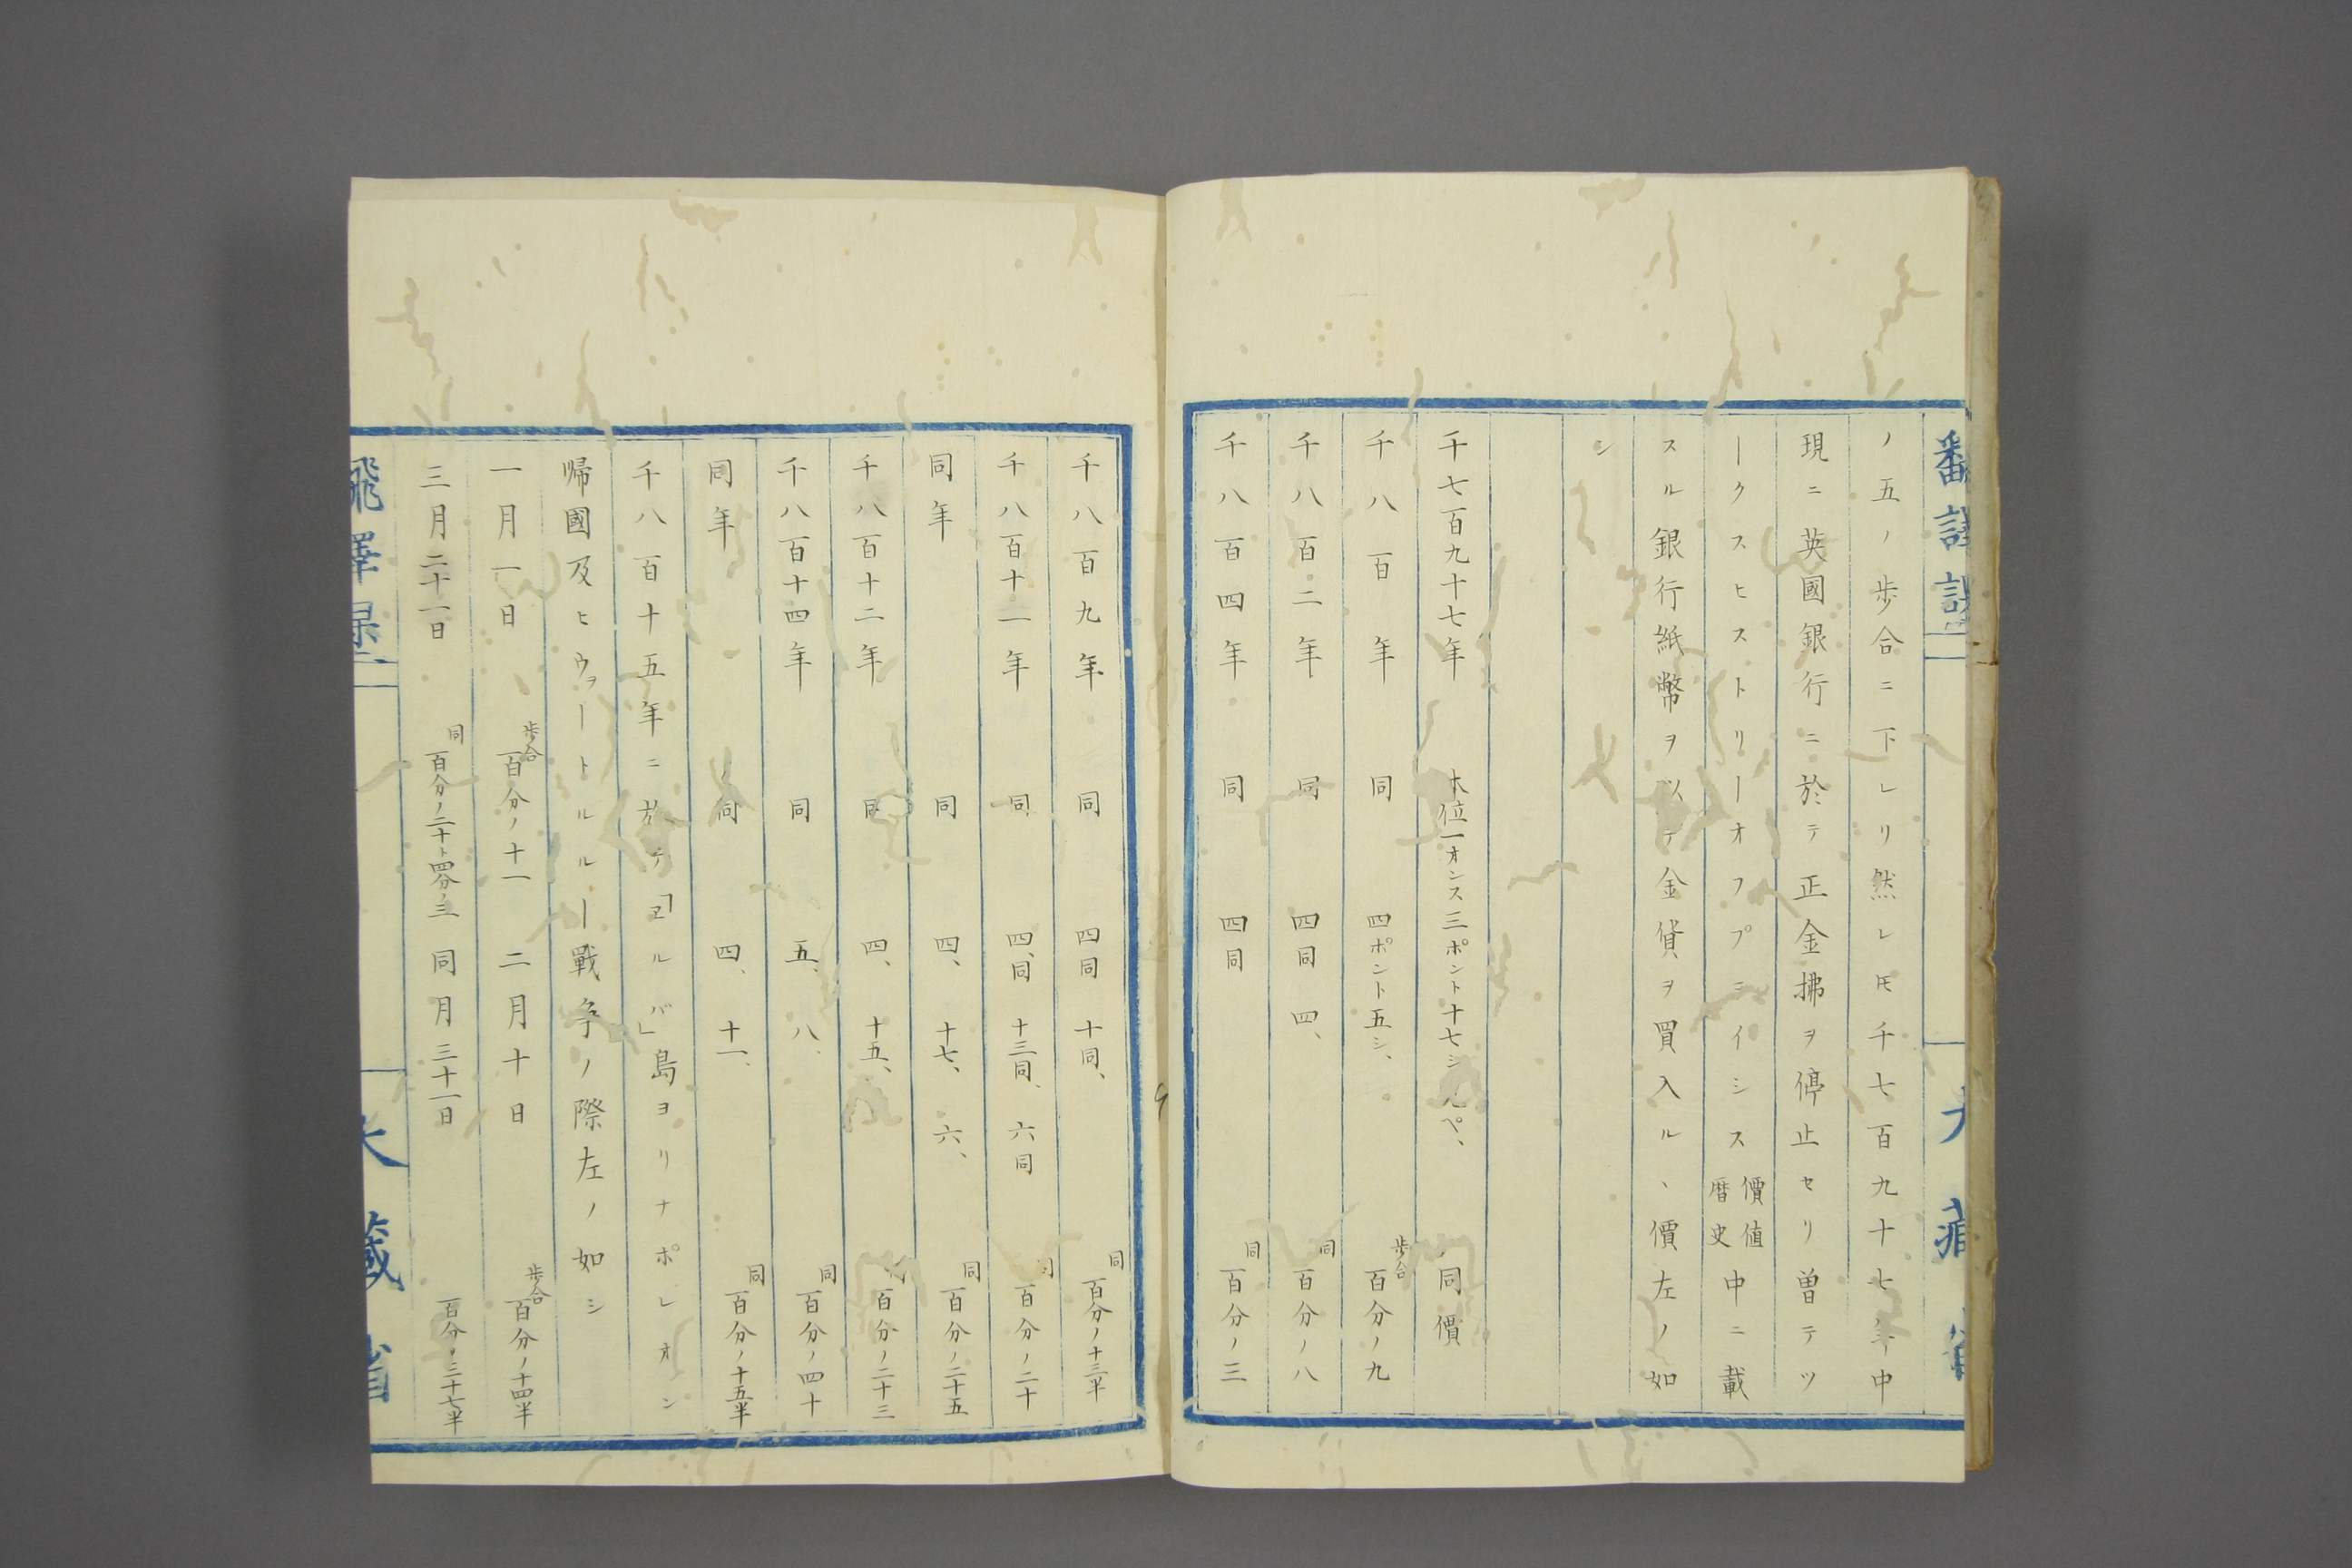 ノ五ノ歩合ニ下レリ然レ𪜈千七百九十七年中
現ニ英國銀行ニ於テ正金拂ヲ停止セリ曽テツ
ークスヒストリーオフプライシス價値暦史中ニ載
スル銀行紙幣ヲ以テ金貨ヲ買入ルヽ價左ノ如
シ
千七百九十七年 本位一オンス三ポント十七シルペ、 同價
千八百年 同 四ポント五シ、 歩合百分ノ九
千八百二年 同 四同 四、 同百分ノ八
千八百四年 同 四同 同百分ノ三
千八百九年 同 四同 十同、 同百分ノ十三半
千八百十一年 同 四、同 十三同、 六同 同百分ノ二十
同年 同 四、 十七、 六、 同百分ノ二十五
千八百十二年 同 四、 十五、 同百分ノ二十三
千八百十四年 同 五、 八、 同百分ノ四十
同年 同 四、 十一、 同百分ノ十五半
千八百十五年ニ於テ「ヱルバ」島ヨリナポレオン
帰國及ヒウヲートルルー戰争ノ際左ノ如シ
一月一日 歩合百分ノ十一 二月十日 歩合百分ノ十四半
三月二十一日 同百分ノ二十ト四分ノ三 同月三十一日 百分ノ二十七半
大藏省